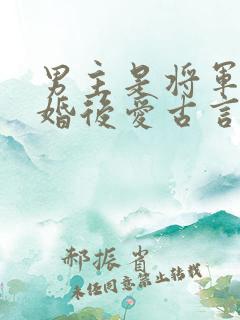 男主是将軍
婚後愛古言
郝振省
未经同意禁止转载